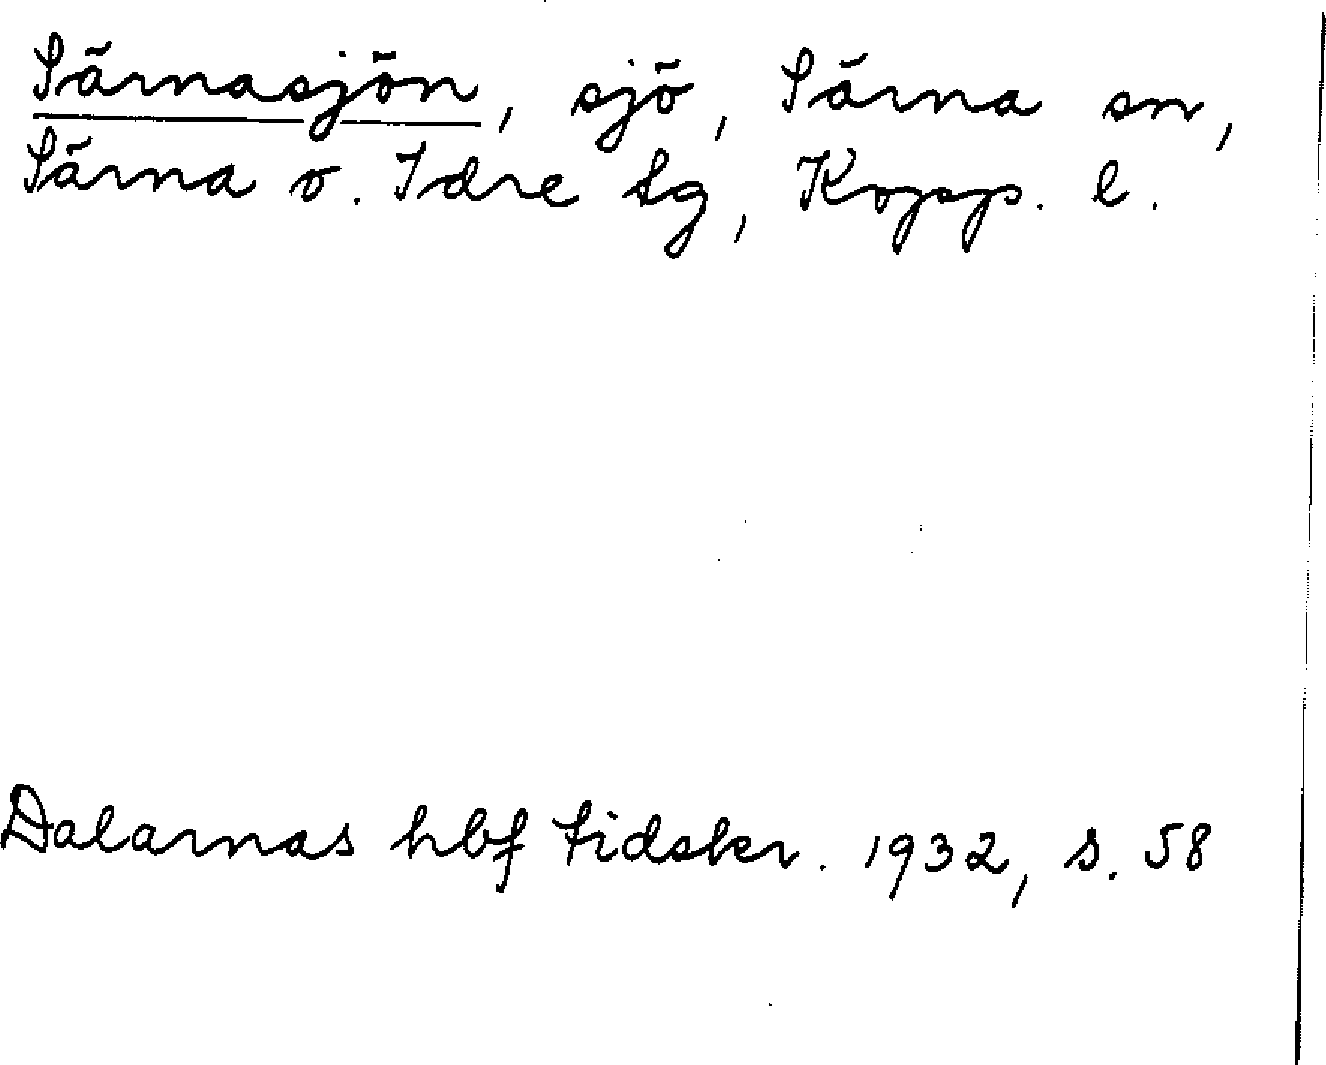 Särnasjön, sjö, Särna sn,
Särna o. Idre tg, Kopp. l.
Dalarnas hbf tidskr. 1932, s. 58